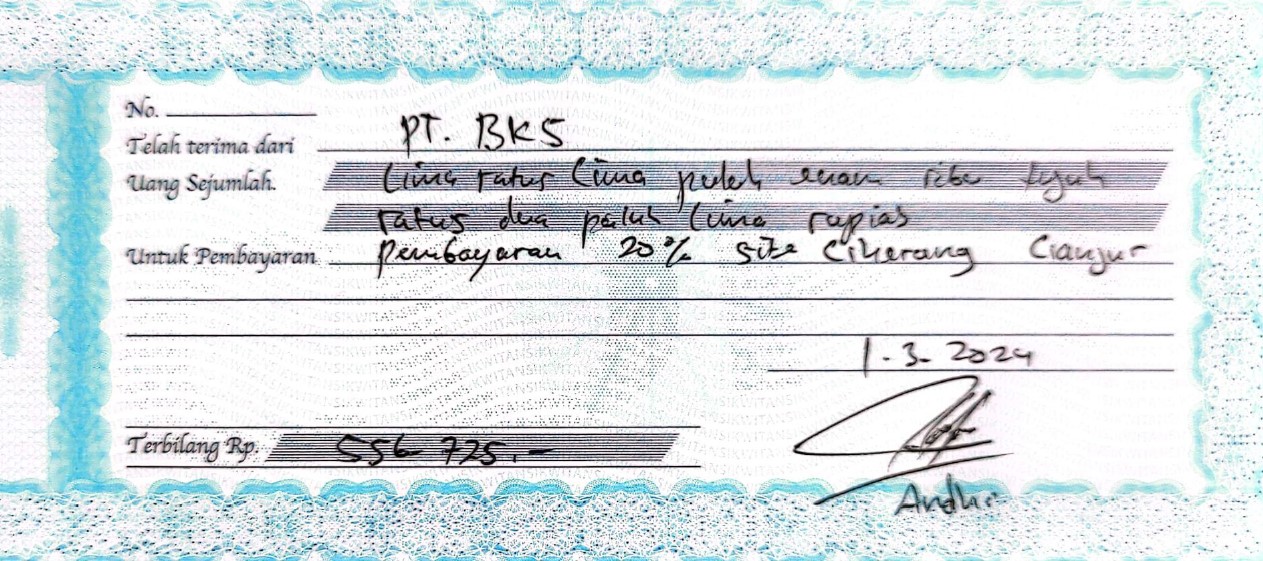 No.
Telah terima dari PT. BKS
Uang Sejumlah. Lima ratus lima puluh enam ribu tujuh
ratus dua puluh lima rupiah
Untuk Pembayaran Pembayaran 20% site Ciherang Cianjur
1-3-2024
Terbilang Rp. 556 725.-